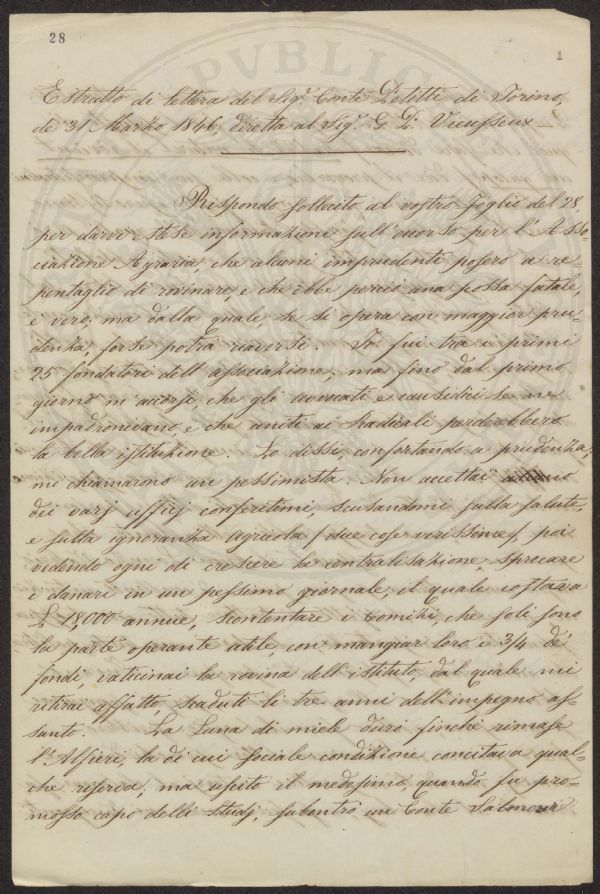 28
1
Estratto di lettera del Sig.r Conte Petitti di Torino,
de' 31 Marzo 1846, diretta al Sig.r G. P. Vieusseux —
Rispondo sollecito al vostro foglio del 28,
per darvi estese informazioni sull'occorso per l'Asso-
ciazione Agraria, che alcuni imprudenti posero a re-
pentaglio di rovinare, e che ebbe perciò una scossa fatale,
è vero, ma dalla quale, se si opera con maggior pru-
denza, forse potrà riaversi. Io fui tra i primi
25 fondatori dell'associazione; ma fino dal primo
giorno m'accorsi, che gli avvocati e causidici se ne
impadronivano e che uniti ai Radicali perderebbero
la bella istituzione. Lo dissi, confortando a prudenza;
mi chiamarono un pessimista. Non accettai
dei varj ufficj conferitimi, scusandomi sulla salute,
e sulla ignoranza agricola (due cose verissime), poi
vedendo ogni dì crescere la centralisazione, sprecare
i danari in un pessimo giornale, il quale costava
L. 18,000 annue, scontentare i Comizi, che soli sono
la parte operante utile, con mangiar loro i 3/4 de'
fondi, vaticinai la rovina dell'istituto, dal quale mi
ritirai affatto, scaduti li tre anni dell'impegno as-
sunto. La Luna di miele durò finchè rimase
l'Alfieri, la di cui sociale condizione concitava qual-
che riserva; ma uscito il medesimo, quando fu pro-
mosso capo delli studj, subentrò un Conte Salmour